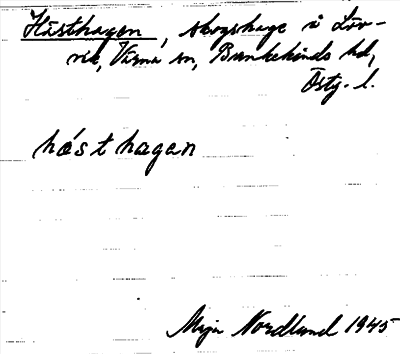 Hästhagen, skogshage i Löv-
vik, Värna sn, Bankekinds hd,
Östg. l.
hásthagen
Maja Nordlund 1945